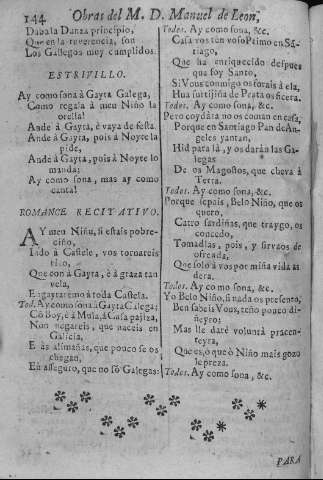 144 Obras del M. D. Manuel de Leon,
Dabala Danza principio,
Que en la reverencia, son
Los Gallegos muy cumplidos.
ESTRIVILLO.
Ay como sona à Gayta Galega,
Como regala à meu Niño la
orella!
Ande à Gayta, è vaya de festa.
Ande à Gayta, pois à Noyte lo
pide,
Ande à Gayta, pois à Noyte lo
manda;
Ay como sona, mas ay como
canta!
ROMANCE RECITATIVO.
AY meu Niñu, si estais pobre-
ciño,
Iado à Castele, vos tornareis
rico,
Que con à Gayta, è à graza tan
vela,
Engaytaremo à toda Castela.
Tod. Ay como sona à Gayta Galega;
Cò Boy, è à Mula, à Casa pajiza,
Non negareis, que naceis en
Galicia,
E às alimañas, que pouco se os
chegan,
Eu asseguro, que no sò Galegas:
Todos. Ay como sona, &c.
Casa vos ten voso Primo en Sã-
tiago,
Que ha enriquecido despues
que foy Santo,
Si Vus conmigo os forais à ela,
Hua tartiñha de Prata os ficera.
Todos. Ay como sona, &c.
Pero coydára no os coman en casa,
Porque en Santiago Pan de An-
geles yantan,
Hid para lá, y os darán las Ga-
legas
De os Magostos, que cheva à
Terra.
Todos. Ay como sona, &c.
Porque sepais, Belo Niño, que os
quero,
Catro sardiñas, que traygo, os
concedo,
Tomadlas, pois, y sirvaos de
ofrenda,
Que solo à vos por miña vida às
dera.
Todos. Ay como sona, &c.
Yo Belo Niño, si nada os presento,
Ben sabeis Vous, teño pouco di-
ñeyro;
Mas lle darè voluntà pracen-
teyra,
Que es, o que ò Niño mais gozo
le preza.
Todos. Ay como sona, &c.
PARA